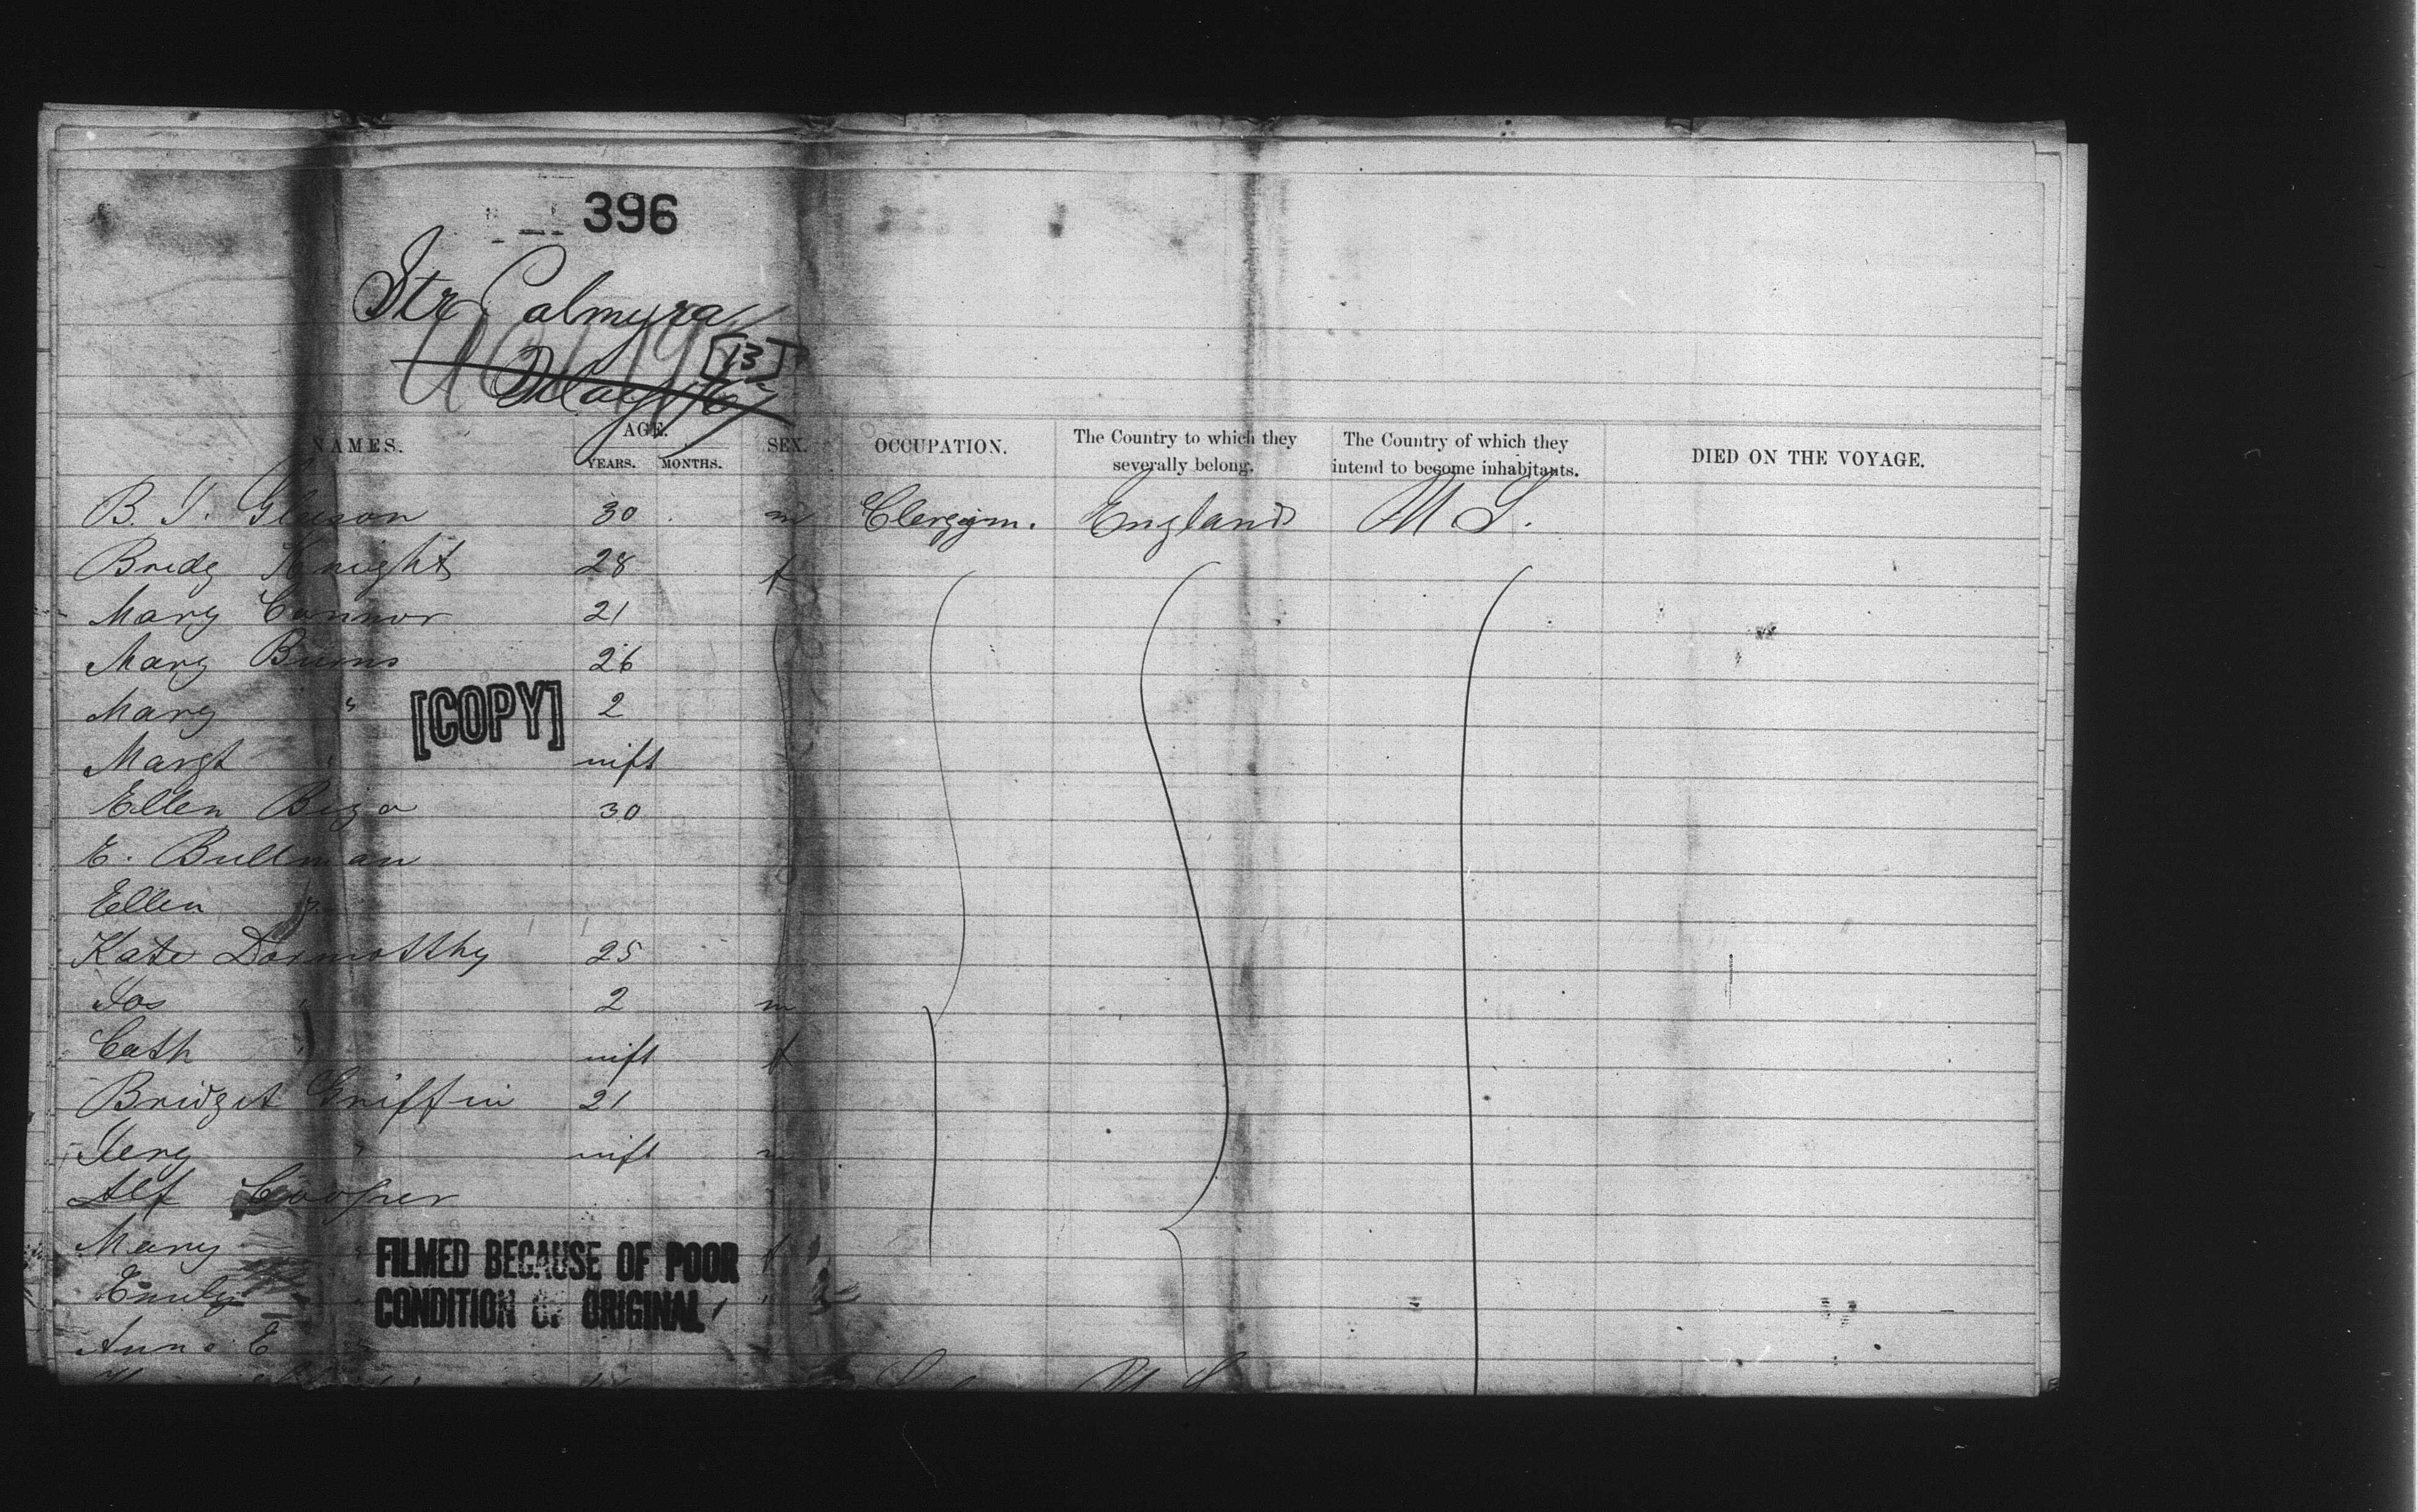 396
Str Palmyra
[13]
May 16
NAMES. AGE. SEX. OCCUPATION. The Country to which they severally belong. The Country of which they intend to become inhabitants. DIED ON THE VOYAGE.
YEARS. MONTHS.
B. J. Gleason 30 m Clergym. England U S.
Bridg Knight 28 f
Mary Connor 21
Mary Burns 26
Mary " 2
[COPY]
Margt " inft
Ellen 30
E. Bullman
Ellen "
Kate Dormotthy 25
Jos " 2 m
Cath " inft f
Bridget Griffin 21
Jery " inft m
Alf Cooper
Mary " f
Emily " "
Anna E "
FILMED BECAUSE OF POOR
CONDITION OF ORIGINAL
U S